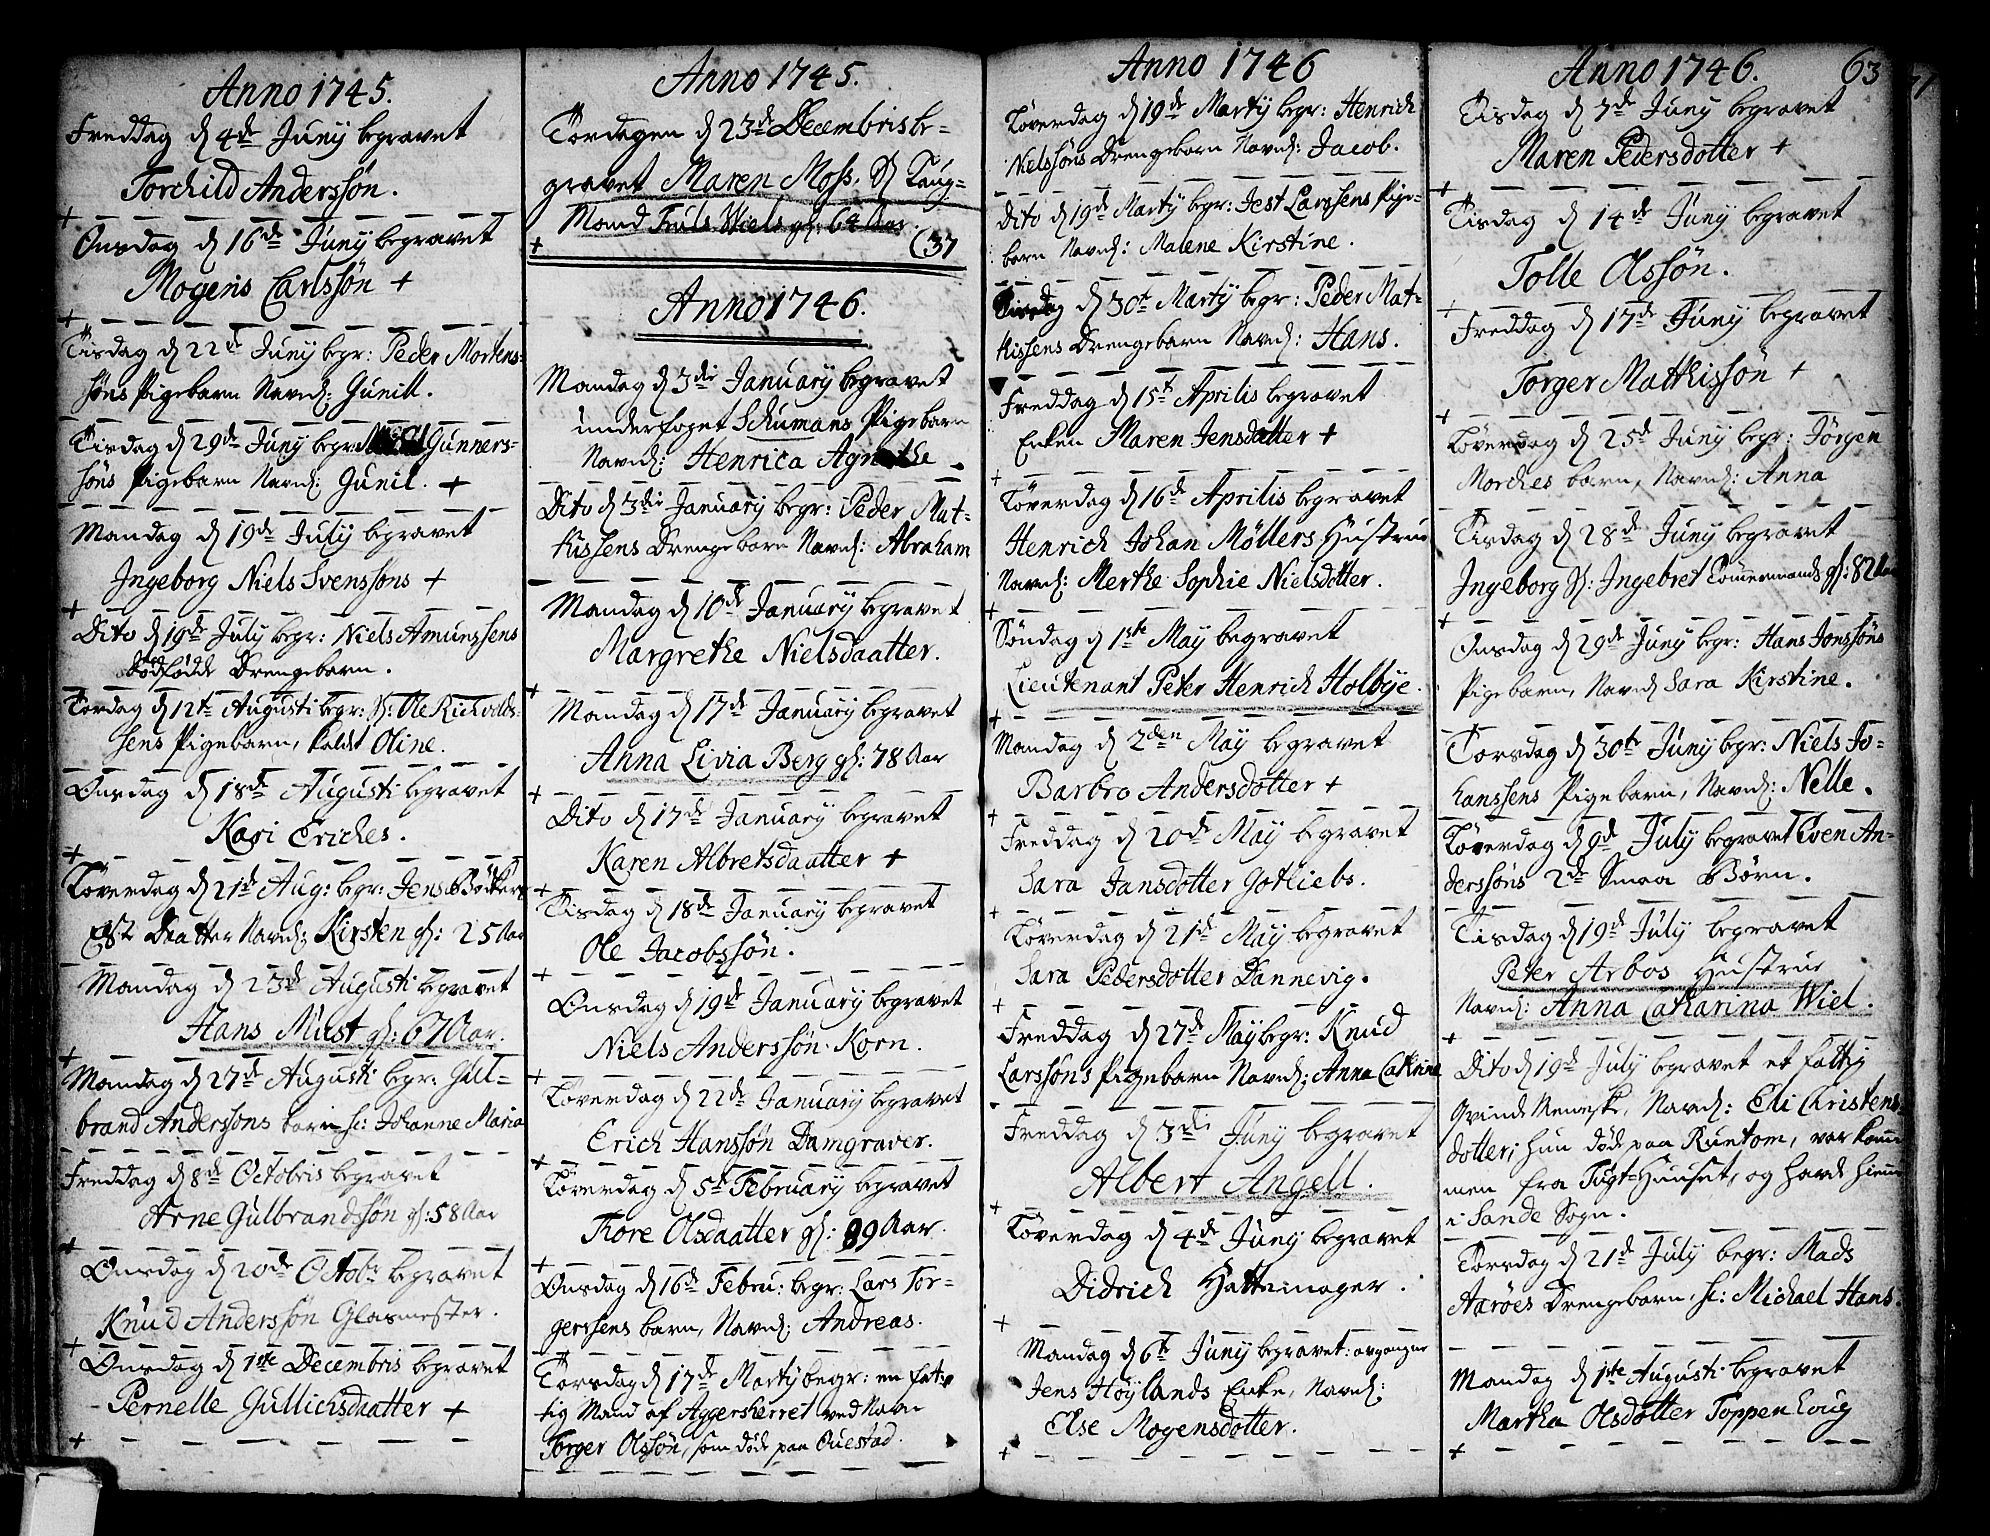 Anno 1745.
Freddag d 4de Juny begravet
Torchild Anderssön.
Onsdag d 16de Juny begravet
Mogens Carlssön +
Tisdag d 22de Juny begr: Peder Mortens-
söns Pigebarn Navnl: Gunill.
Tisdag d 29de Juny begr Gunners-
söns Pigebarn Navnl: Gunil. +
Mandag d 19de July begravet
Ingeborg Niels Svenssöns +
Dito d 19de July begr: Niels Amunssens
dödfödde Drengebarn.
Torsdag d 12te Augusti begr: Ole Richolds-
sens Pigebarn, kaldt Oline.
Onsdag d 18de Augusti begravet
Kari Eriches.
Löverdag d 21de Aug: begr: Jens Bödkers
Daatter Navnl: Kirsten gl: 25 Aar
Mandag d 23de Augusti begravet
Hans Must gl: 67 Aar.
Mandag d 27de Augusti begr: Gul-
brand Anderssöns barn sc: Johanne Maria
Freddag d 8de Octobris begravet
Arne Gulbrandssön gl: 58 Aar
Onsdag d 20de Octobr begravet
Knud Anderssön Glasmester.
Onsdag d 1ste Decembris begravet
Pernelle Gullichsdaatter +
Anno 1745.
Torsdagen d 23de Decembris be-
gravet Maren Moss. Taug-
Mand Truls Wiels gl: 64 Aar
(37
Anno 1746.
Mandag d 3die January begravet
underfoget Schumans Pigebarn
Navnl: Henrica Agnethe.
Dito d 3die January begr: Peder Mat-
hissens Drengebarn Navnl: Abraham
Mandag d 10de January begravet
Margrethe Nielsdaatter.
Mandag d 17de January begravet
Anna Livia Berg gl: 78 Aar
Dito d 17de January begravet
Karen Albretsdaatter +
Tisdag d 18de January begravet
Ole Jacobssön.
Onsdag d 19de January begravet
Niels Anderssön Korn.
Löverdag d 22de January begravet
Erich Hanssön Damgraver.
Löverdag d 5te February begravet
Thore Olsdaatter gl: 89 Aar.
Onsdag d 16de Febru: begr: Lars Tor-
gerssens barn, Navnl: Andreas.
Torsdag d 17de Marty begr: en fat-
tig Mand af Aggersherret ved Navn
Torger Olssön, som döde paa Ouestad.
Anno 1746
Löverdag d 19de Marty begr: Henrich
Nielssöns Drengebarn Navnl: Jacob.
Dito d 19de Marty begr: Jest Larssens Pige-
barn Navnl: Malene Kirstine.
d 30te Marty begr: Peder Mat-
hissens Drengebarn Navnl: Hans.
Freddag d 15te Aprilis begravet
Enken Maren Jensdatter +
Löverdag d 16de Aprilis begravet
Henrich Johan Möllers Hustrue
Navnl: Merthe Sophie Nielsdotter.
Söndag d 1ste May begravet
Lieutenant Peter Henrich Holbye.
Mandag d 2den May begravet
Barbro Andersdotter +
Freddag d 20de May begravet
Sara Jansdotter Gotliebs.
Löverdag d 21de May begravet
Sara Pedersdotter Dannevig.
Freddag d 27de May begr: Knud
Larssöns Pigebarn Navnl: Anna Cathrine
Freddag d 3die Juny begravet
Albert Angell.
Löverdag d 4de Juny begravet
Didrich Hattemager.
Mandag d 6te Juny begravet: avgangne
Jens Höylands Enke, Navnl:
Else Mogensdotter.
Anno 1746. 63
Tisdag d 7de Juny begravet
Maren Pedersdotter +
Tisdag d 14de Juny begravet
Tolle Olssön.
Freddag d 17de Juny begravet
Torger Mathissön +
Löverdag d 25de Juny begr: Jörgen
Morches barn, Navnl: Anna
Tisdag d 28de Juny begravet
Ingeborg Sl: Ingebret Tömermands gl: 82 Aar
Onsdag d 29de Juny begr: Hans Jonssöns
Pigebarn, Navnl Sara Kirstine.
Torsdag d 30te Juny begr: Niels Jo-
hanssens Pigebarn, Navnl: Nelle.
Löverdag d 9de July begravet Even An-
derssöns 2de Smaa Börn.
Tisdag d 19de July begravet
Peter Arbos Hustrue
Navnl: Anna Catharina Wiel.
Dito d 19de July begravet et fattig
Qvinde Meneske, Navnl: Eli Christens
dotter, hun döde paa Runtom, var kom
men fra Tugt-Huuset, og havde hiemme
i Sande Sogn.
Torsdag d 21de July begr: Mads
Aaröes Drengebarn, sc: Michael Hans.
Mandag d 1ste Augusti begravet
Martha Olsdotter Toppenhoug